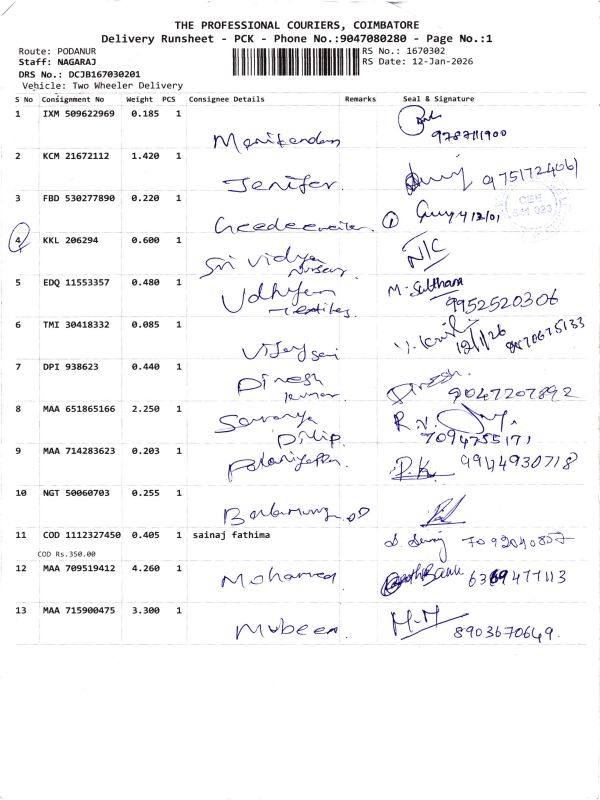 THE PROFESSIONAL COURIERS, COIMBATORE
Delivery Runsheet - PCK - Phone No.:9047080280 - Page No.:1
Route: PODANUR
RS No.: 1670302
Staff: NAGARAJ
RS Date: 12-Jan-2026
DRS No.: DCJB167030201
Vehicle: Two Wheeler Delivery
S No Consignment No Weight PCS Consignee Details Remarks Seal & Signature
1 IXM 509622969 0.185 1
Manikandan
9787111900
2 KCM 21672112 1.420 1
Jenifer.
9751724061
3 FBD 530277890 0.220 1
12/01
4 KKL 206294 0.600 1
Sri Vidya
N/C
5 EDQ 11553357 0.480 1
Udhyam
Textiles
M. Sulthana
9952520306
6 TMI 30418332 0.085 1
Vijay sai
12/1/26
7 DPI 938623 0.440 1
Dinesh
kumar.
9047207892
8 MAA 651865166 2.250 1
Saranya
Dilip
R.V.
7094755171
9 MAA 714283623 0.203 1
Palaniyappan.
P.K
9944930718
10 NGT 50060703 0.255 1
11 COD 1112327450 0.405 1 sainaj fathima
COD Rs.350.00
7092040857
12 MAA 709519412 4.260 1
Mohamed
6369477113
13 MAA 715900475 3.300 1
Mubeen.
M.M
8903670649.